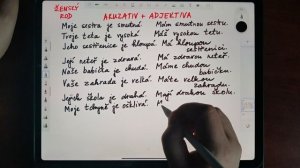 ŽENSKÝ
ROD
AKUZATIV + ADJEKTIVA
Moje sestra je smutná. Mám smutnou sestru.
Tvoje teta je vysoká. Máš vysokou tetu.
Jeho sestřenice je hloupá. Má hloupou
sestřenici.
Její neteř je zdravá. Má zdravou neteř.
Naše babička je chudá. Máme chudou
babičku.
Vaše zahrada je velká. Máte velkou
zahradu.
Jejich škola je drahá. Mají drahou školu.
Moje tchyně je ošklivá. M